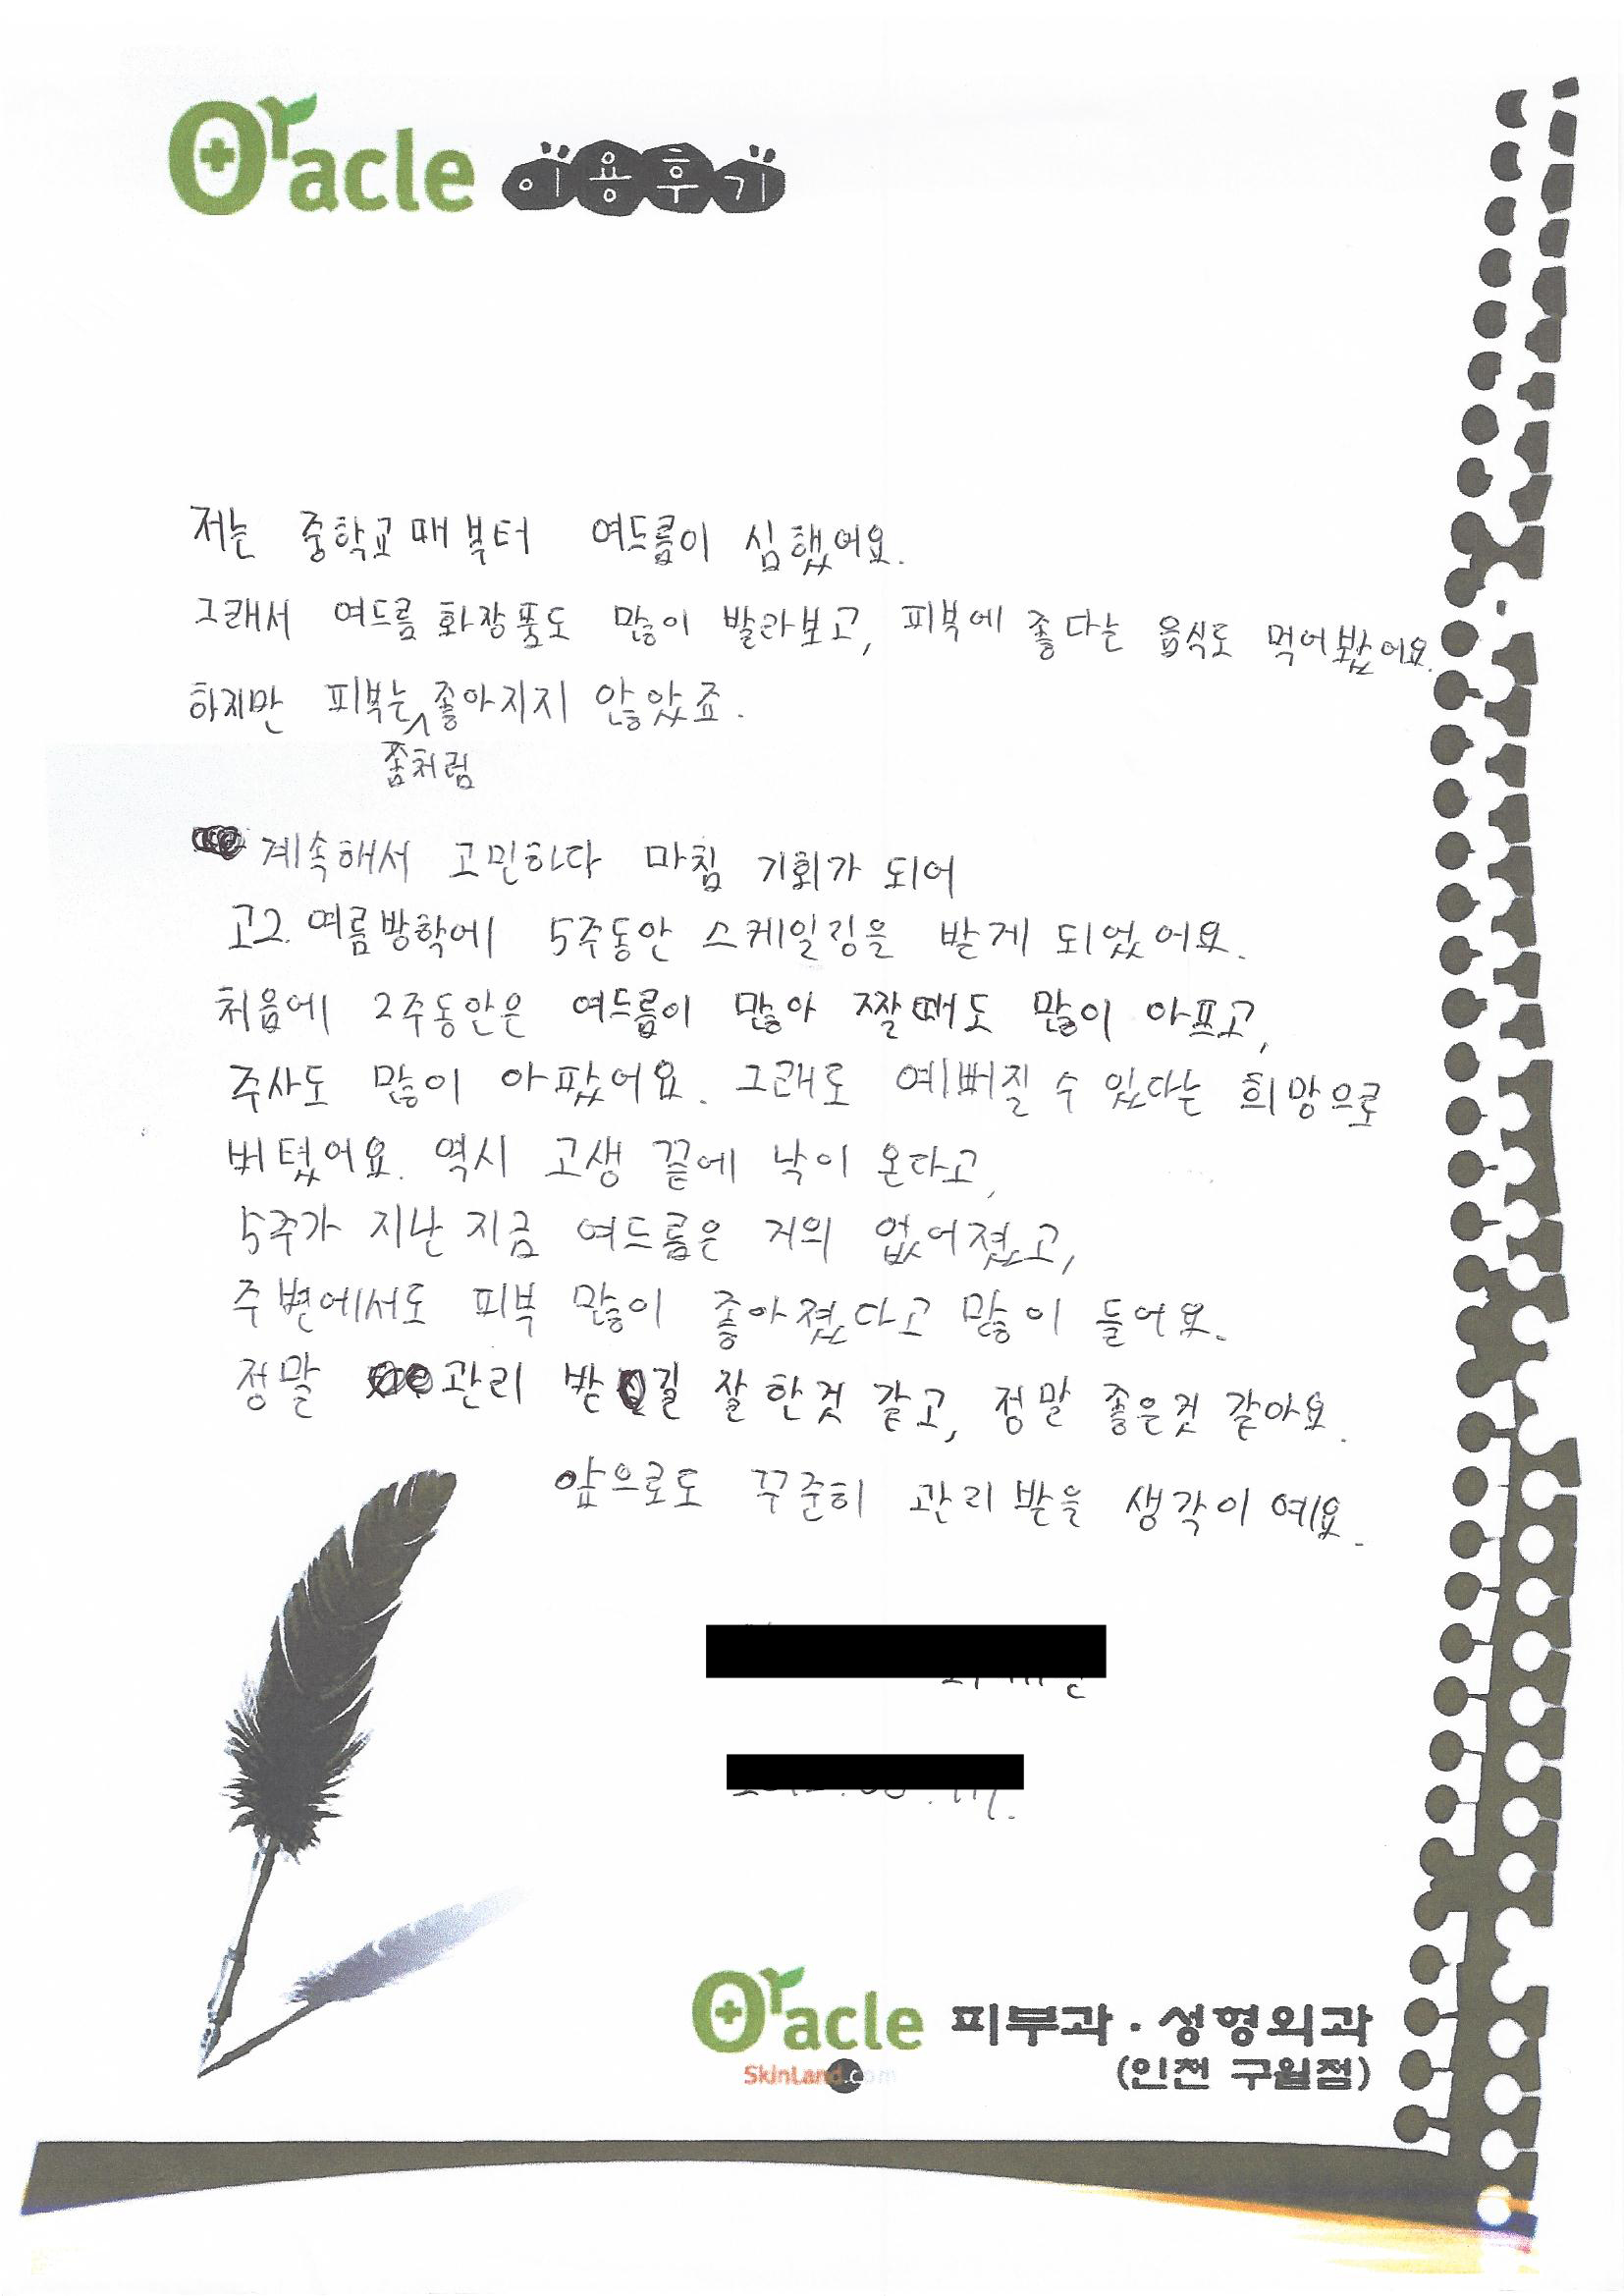 Oracle 이용후기
저는 중학교때부터 여드름이 심했어요.
그래서 여드름 화장품도 많이 발라보고, 피부에 좋다는 음식도 먹어봤어요.
하지만 피부는 좀처럼 좋아지지 않았죠.
계속해서 고민하다 마침 기회가 되어
고2 여름방학에 5주동안 스케일링을 받게 되었어요.
처음에 2주동안은 여드름이 많아 짤때도 많이 아프고,
주사도 많이 아팠어요. 그래도 예뻐질 수 있다는 희망으로
버텼어요. 역시 고생 끝에 낙이 온다고,
5주가 지난 지금 여드름은 거의 없어졌고,
주변에서도 피부 많이 좋아졌다고 많이 들어요.
정말 관리 받길 잘 한것 같고, 정말 좋은것 같아요.
앞으로도 꾸준히 관리 받을 생각이예요.
Oracle 피부과·성형외과
SkinLand.com (인천 구월점)